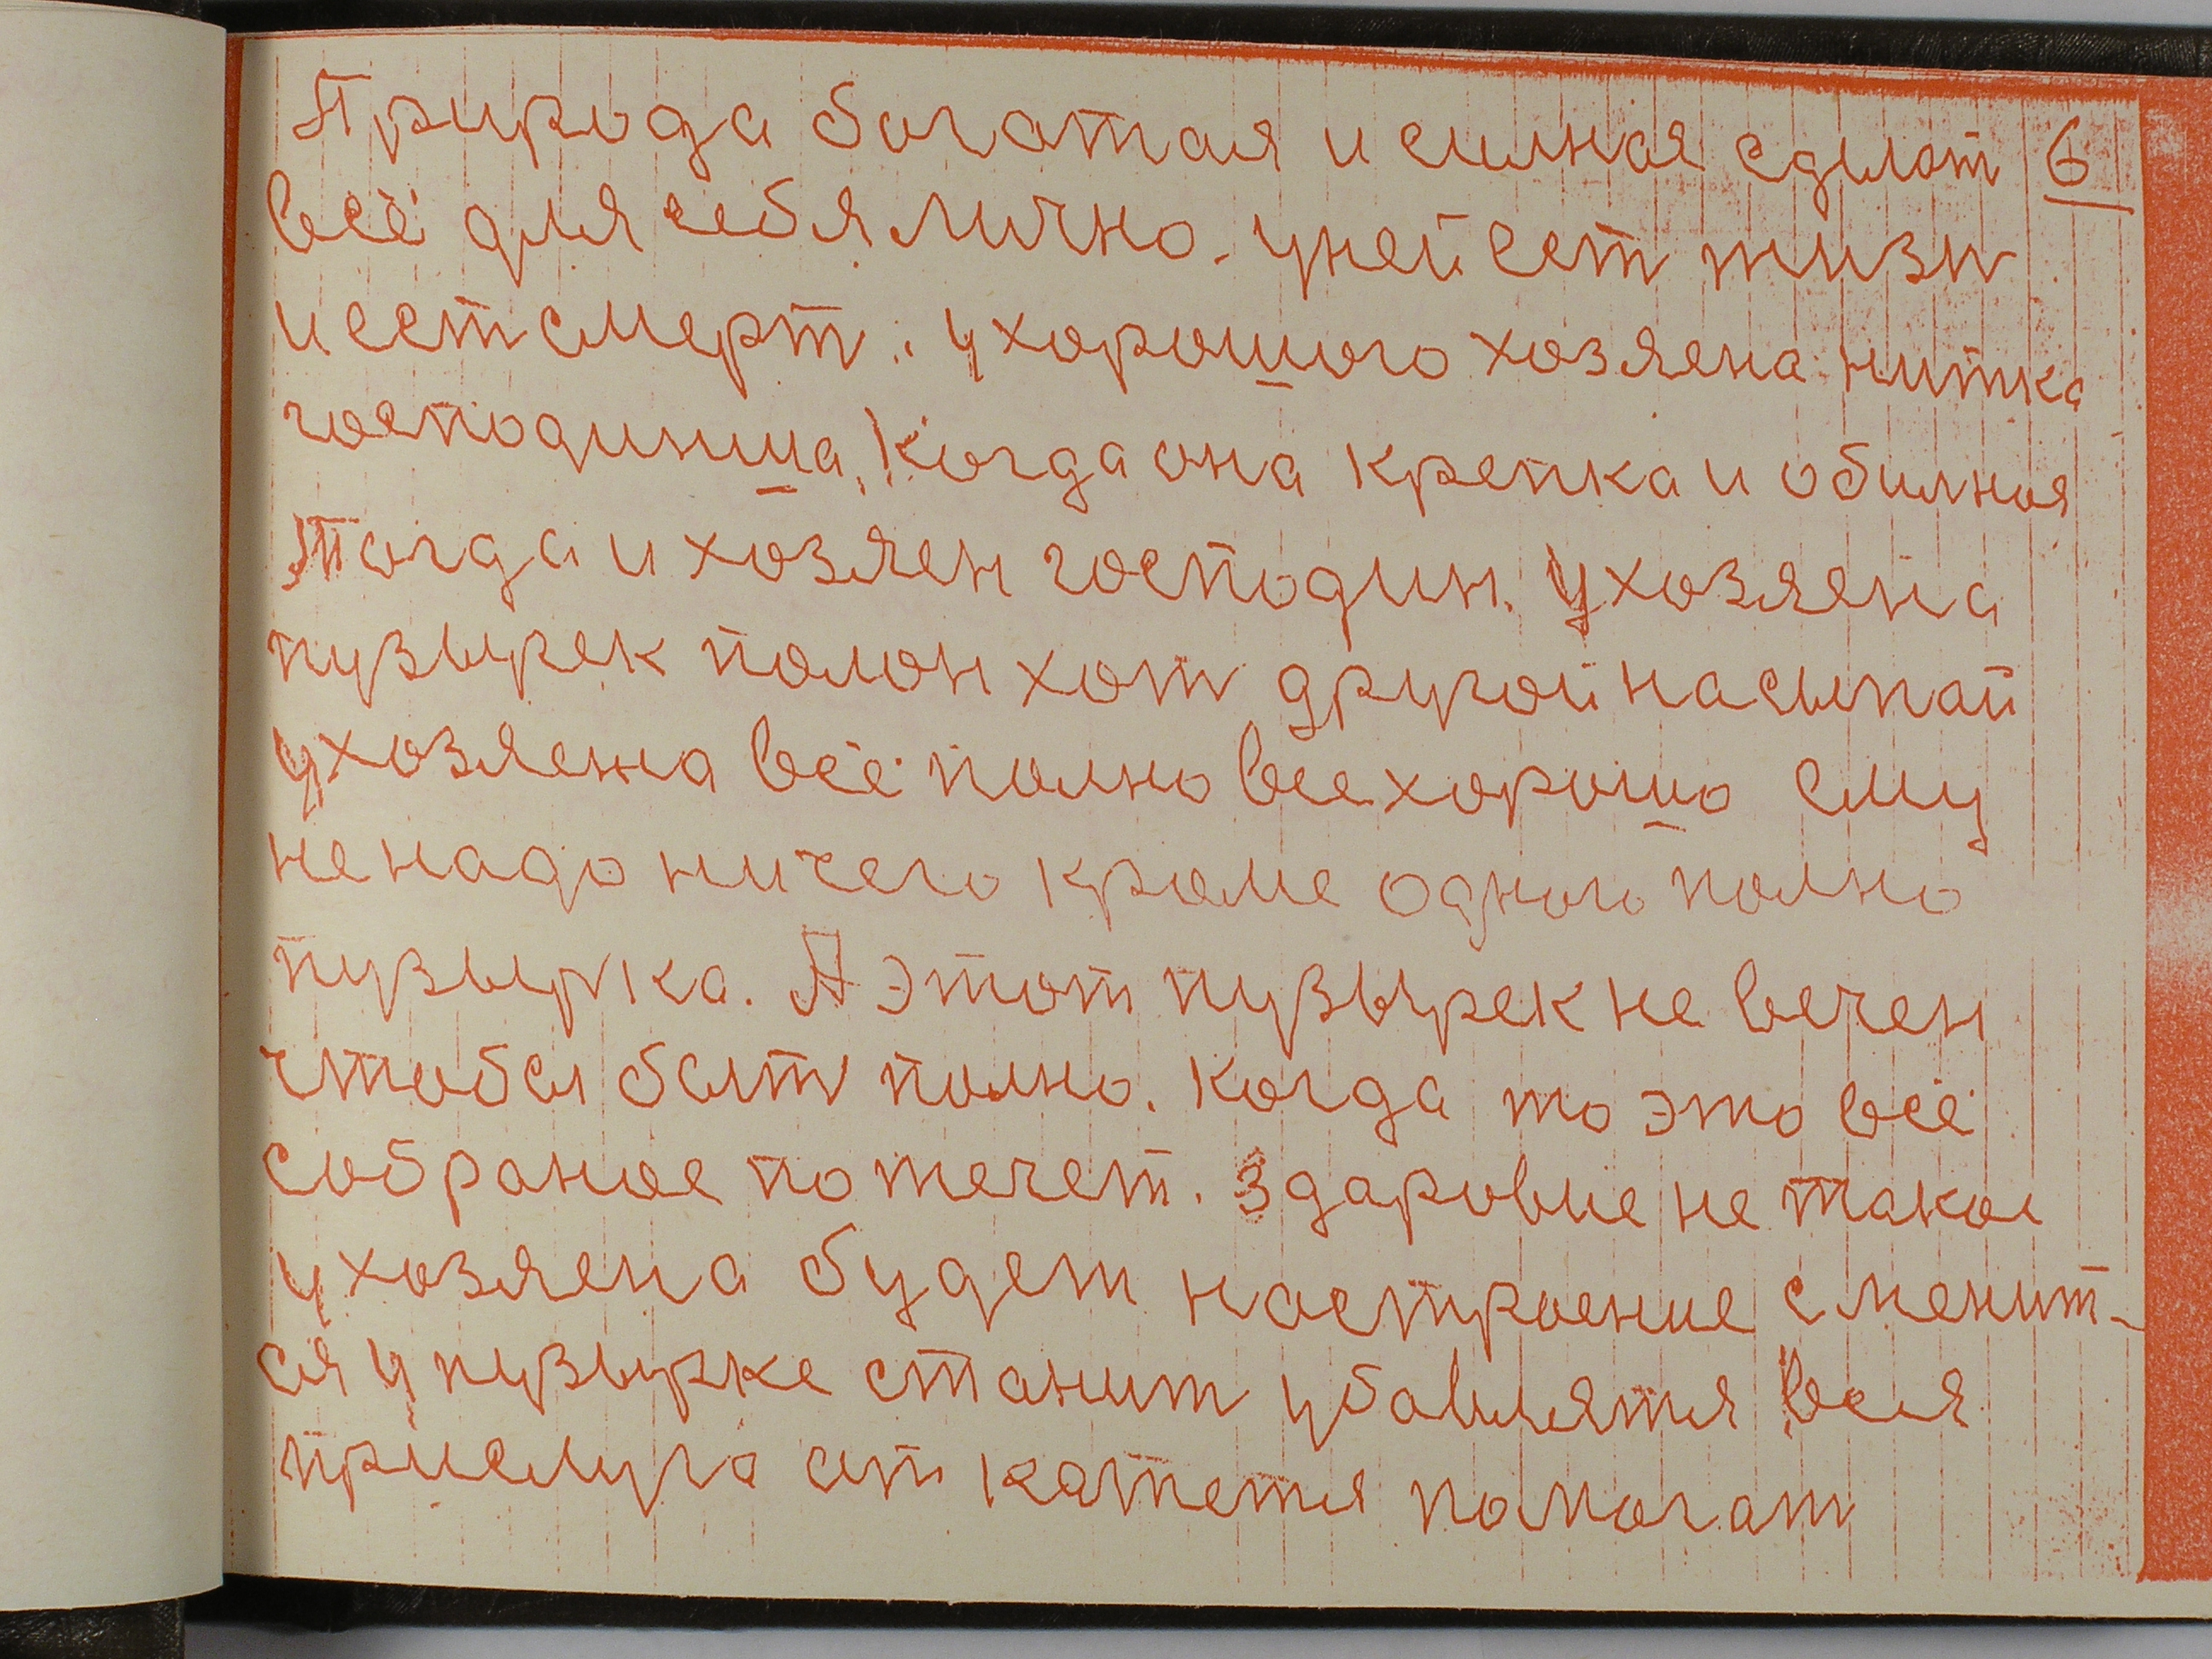 Природа богатая и силная сделат 6
всё для себя лично. у ней ест жизн
и ест смерт. у хорошого хозяена нитка
господинша, Когда она крепка и обилная
Тогда и хозяен господин. у хозяена
пузырек полон хот другой насыпай
у хозяена всё полно все хорошо ему
не надо ничего кроме одного полно
пузырка. А этот пузырек не вечен
чтобы быт полно. Когда то это всё
собраное потечет. Здаровие не такое
у хозяена будет настроение сменит-
ся у пузырке станит убавлятя вся
прислуга от кажетя помогат